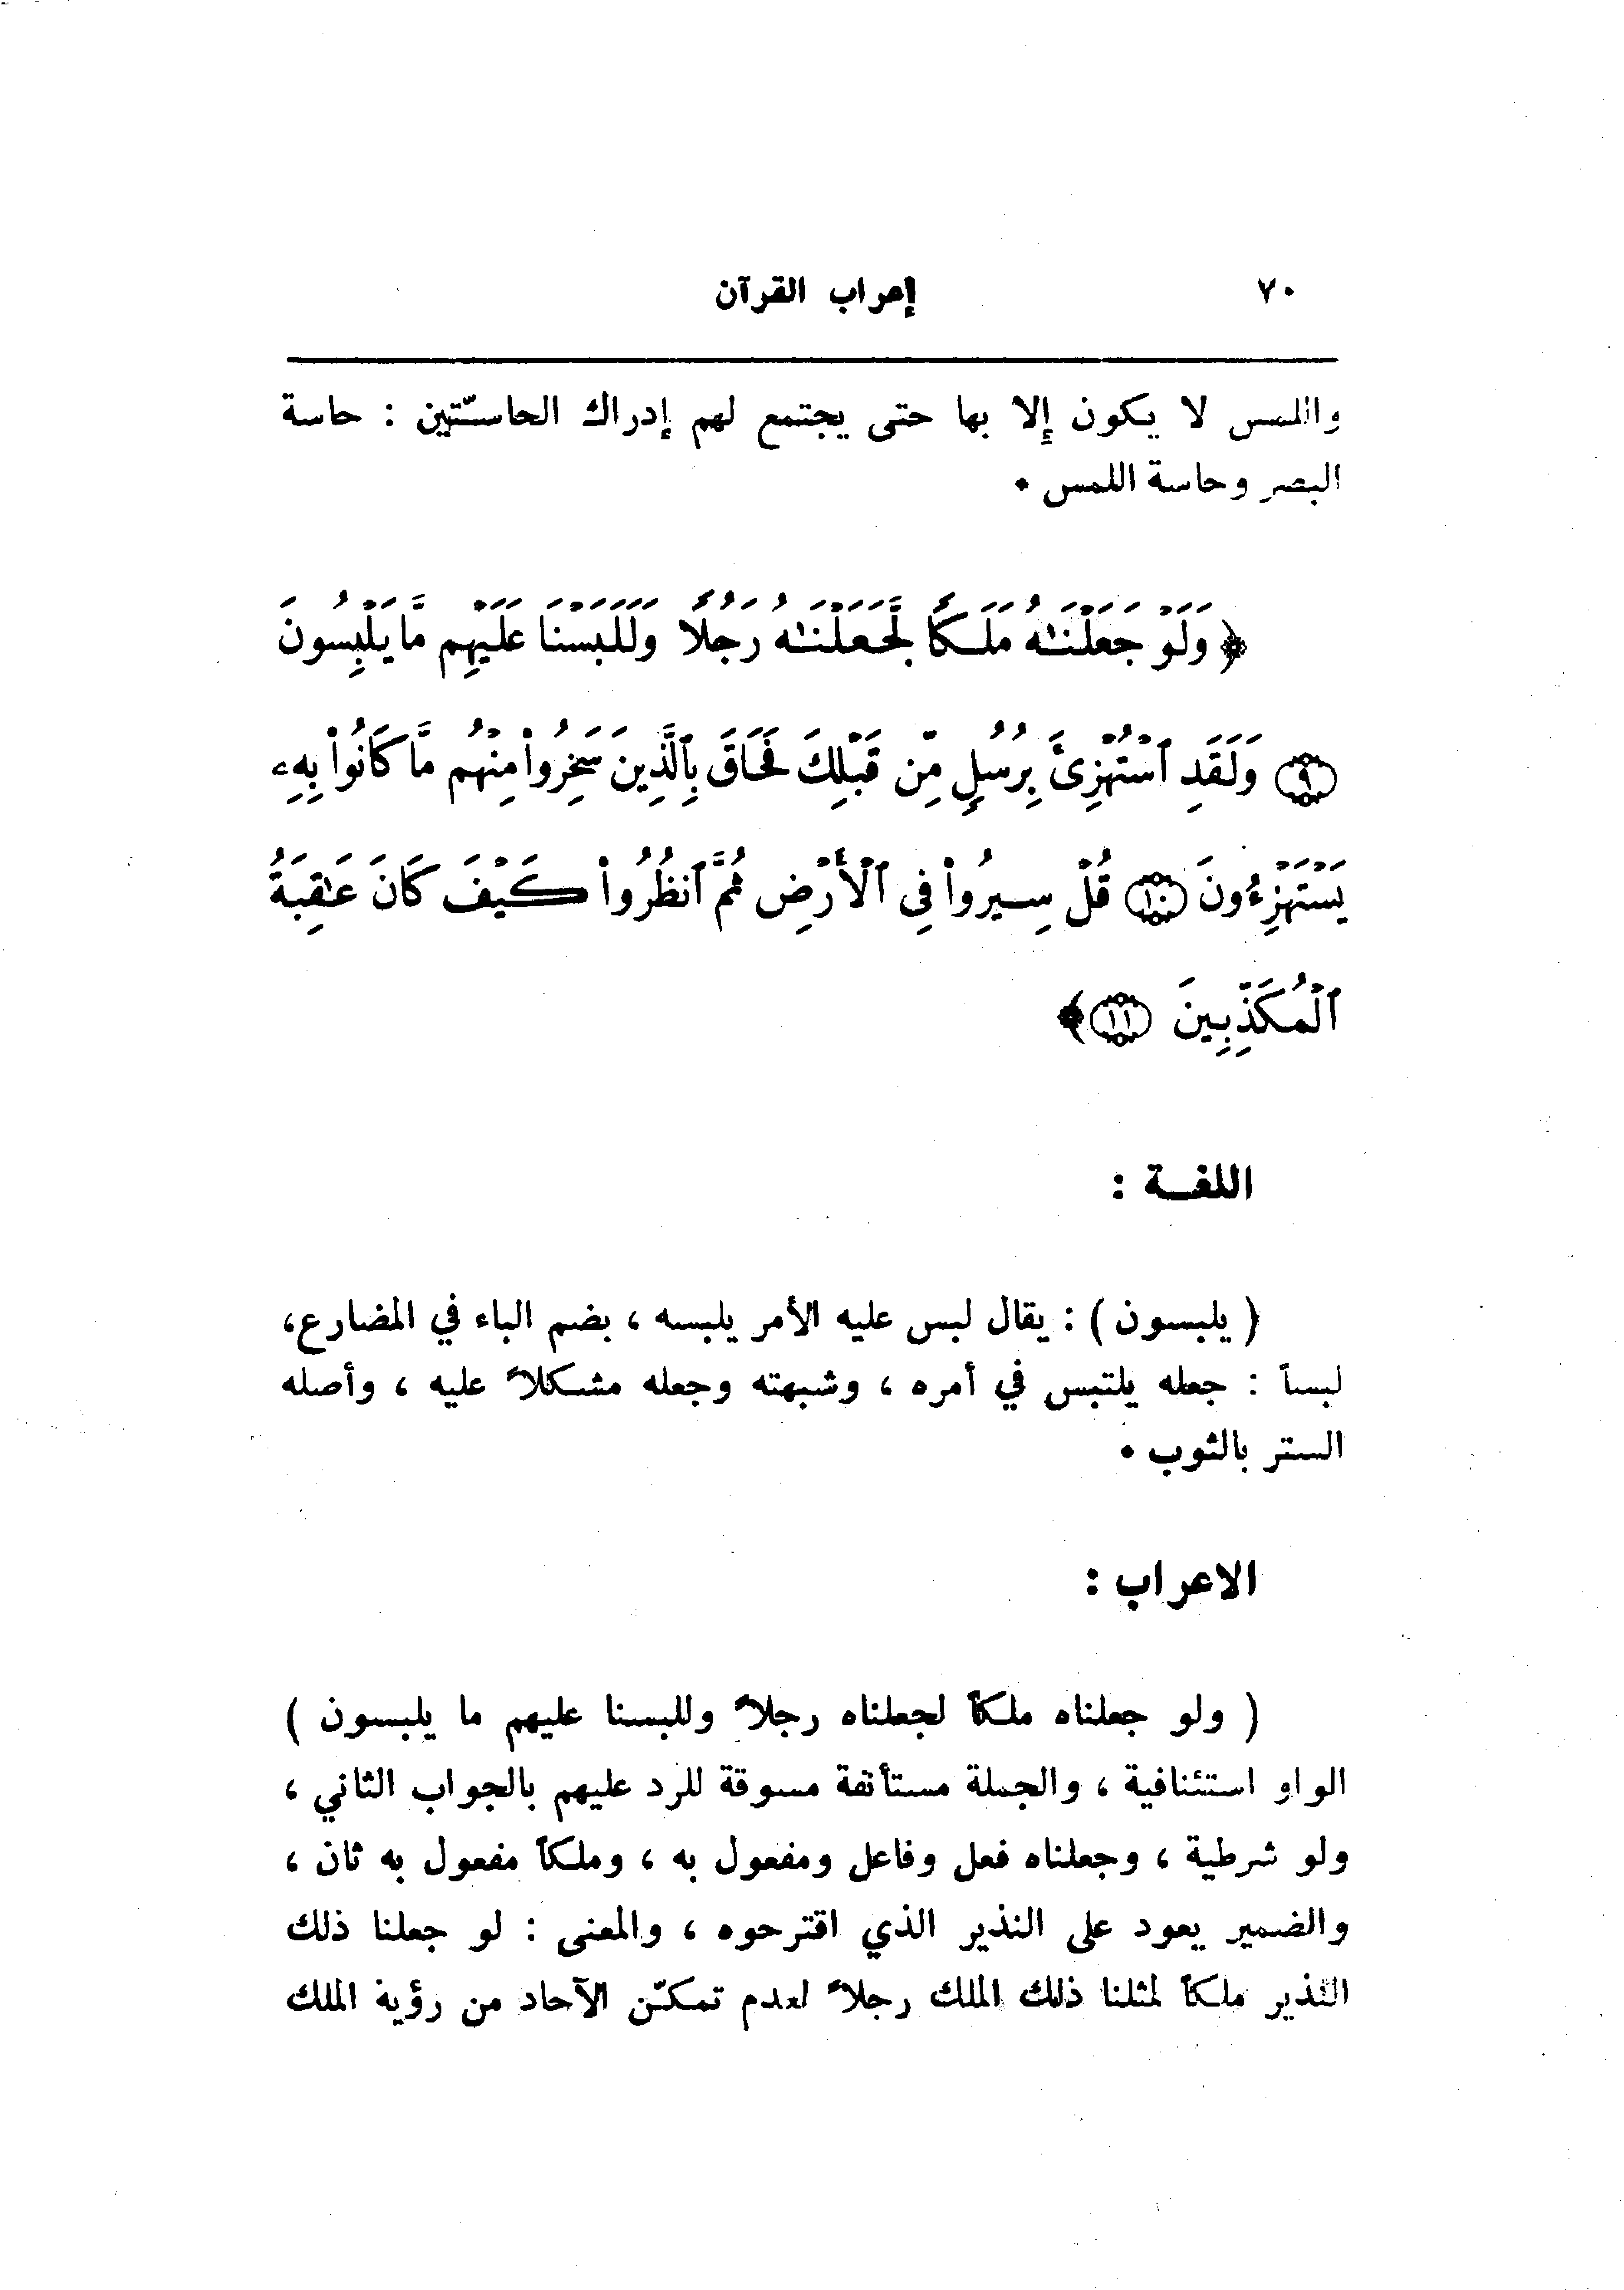 ٧٠ إعراب القرآن
واللمس لا يكون إلا بها حتى يجتمع لهم إدراك الحاسّتين : حاسة
البصر وحاسة اللمس .
﴿ وَلَوْ جَعَلْنَٰهُ مَلَكًا لَّجَعَلْنَٰهُ رَجُلًا وَلَلَبَسْنَا عَلَيْهِم مَّا يَلْبِسُونَ
﴿٩﴾ وَلَقَدِ ٱسْتُهْزِئَ بِرُسُلٍ مِّن قَبْلِكَ فَحَاقَ بِٱلَّذِينَ سَخِرُوا۟ مِنْهُم مَّا كَانُوا۟ بِهِۦ
يَسْتَهْزِءُونَ ﴿١٠﴾ قُلْ سِيرُوا۟ فِى ٱلْأَرْضِ ثُمَّ ٱنظُرُوا۟ كَيْفَ كَانَ عَٰقِبَةُ
ٱلْمُكَذِّبِينَ ﴿١١﴾ ﴾
اللغـة :
( يلبسون ) : يقال لبس عليه الأمر يلبسه ، بضم الباء في المضارع،
لبساً : جعله يلتبس في أمره ، وشبهته وجعله مشكلاً عليه ، وأصله
الستر بالثوب .
الاعراب :
( ولو جعلناه ملكاً لجعلناه رجلاً وللبسنا عليهم ما يلبسون )
الواو استئنافية ، والجملة مستأنفة مسوقة للرد عليهم بالجواب الثاني ،
ولو شرطية ، وجعلناه فعل وفاعل ومفعول به ، وملكاً مفعول به ثان ،
والضمير يعود على النذير الذي اقترحوه ، والمعنى : لو جعلنا ذلك
النذير ملكاً لمثلنا ذلك الملك رجلاً لعدم تمكّن الآحاد من رؤية الملك